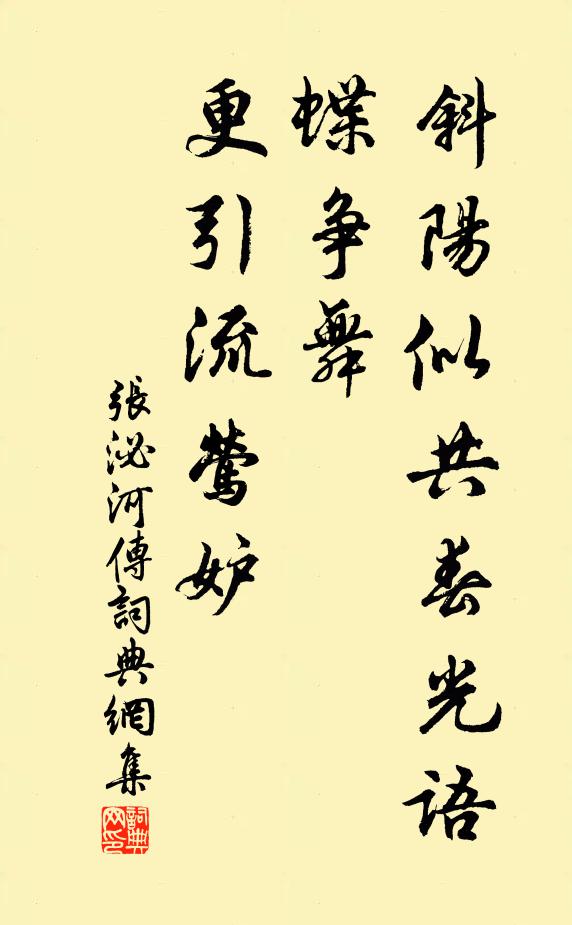 斜陽似共春光語
蝶爭舞
更引流鶯妒
張泌河傳詞典網集
詞典网印